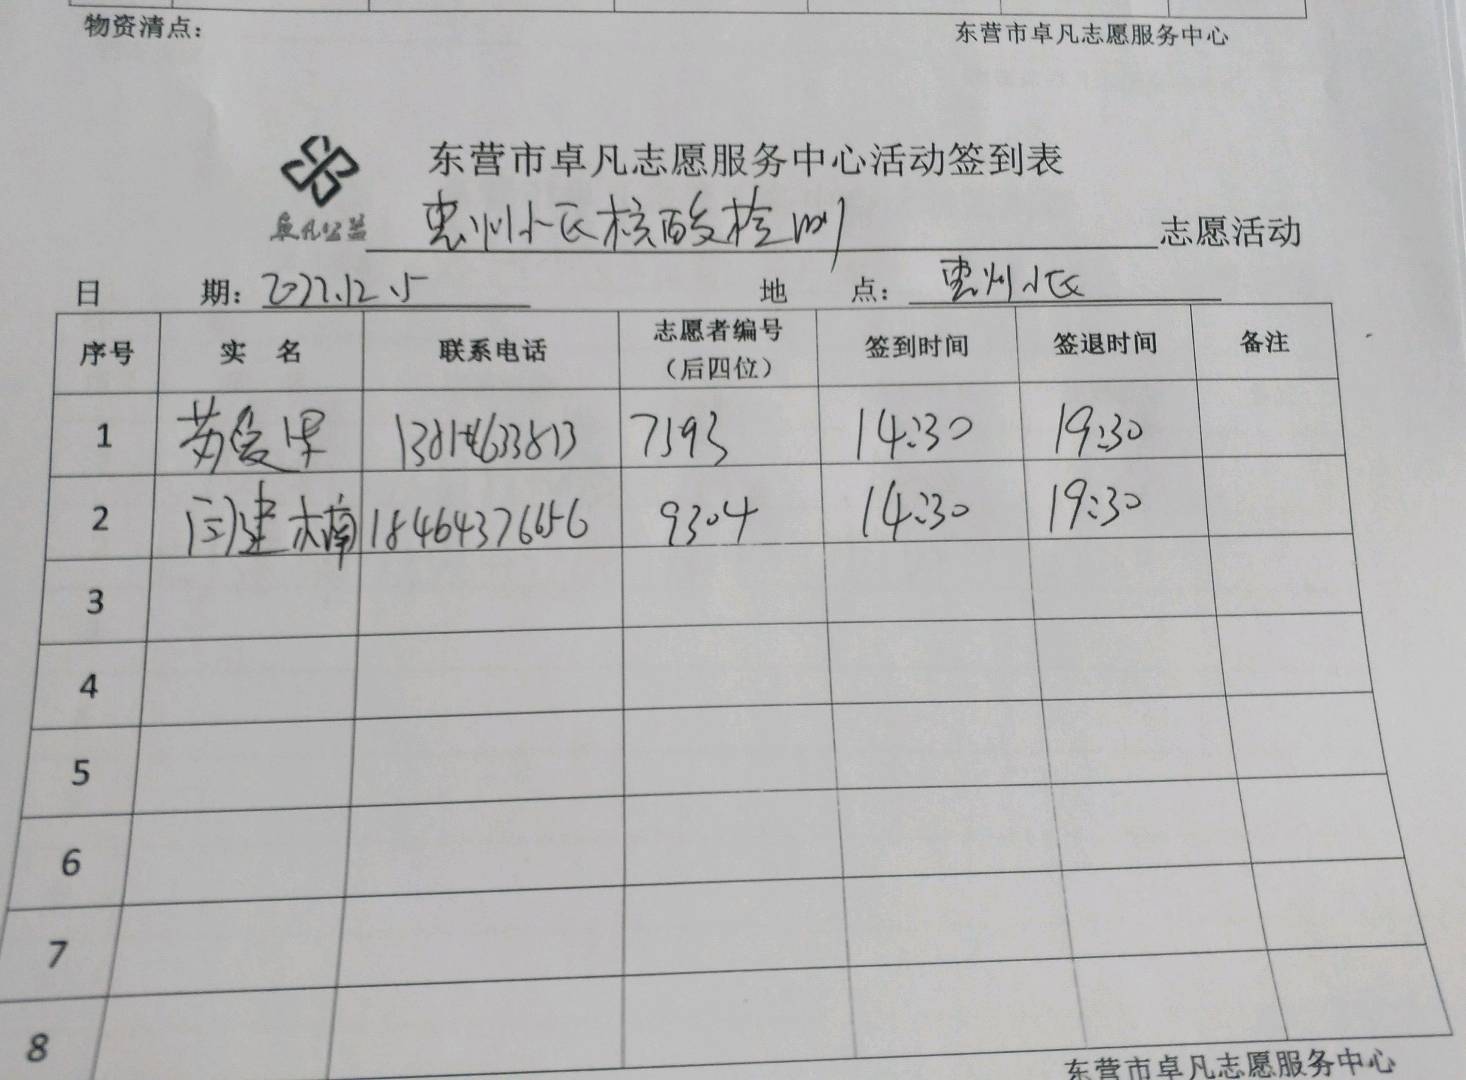 物资清点：
东营市卓凡志愿服务中心
东营市卓凡志愿服务中心活动签到表
卓凡公益 惠州小区核酸检测 志愿活动
日期：2022.12.5 地点：惠州小区
序号 实名 联系电话 志愿者编号（后四位） 签到时间 签退时间 备注
1 苏爱果 7593 14:30 19:30
2 闫建楠 18464376656 9304 14:30 19:30
3
4
5
6
7
8
东营市卓凡志愿服务中心